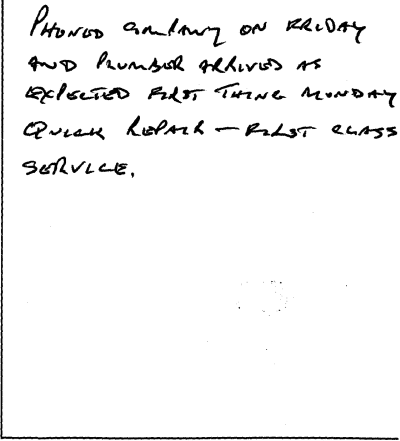 PHONED COMPANY ON FRIDAY
AND PLUMBER ARRIVED AS
EXPECTED FIRST THING MONDAY
QUICK REPAIR — FIRST CLASS
SERVICE.